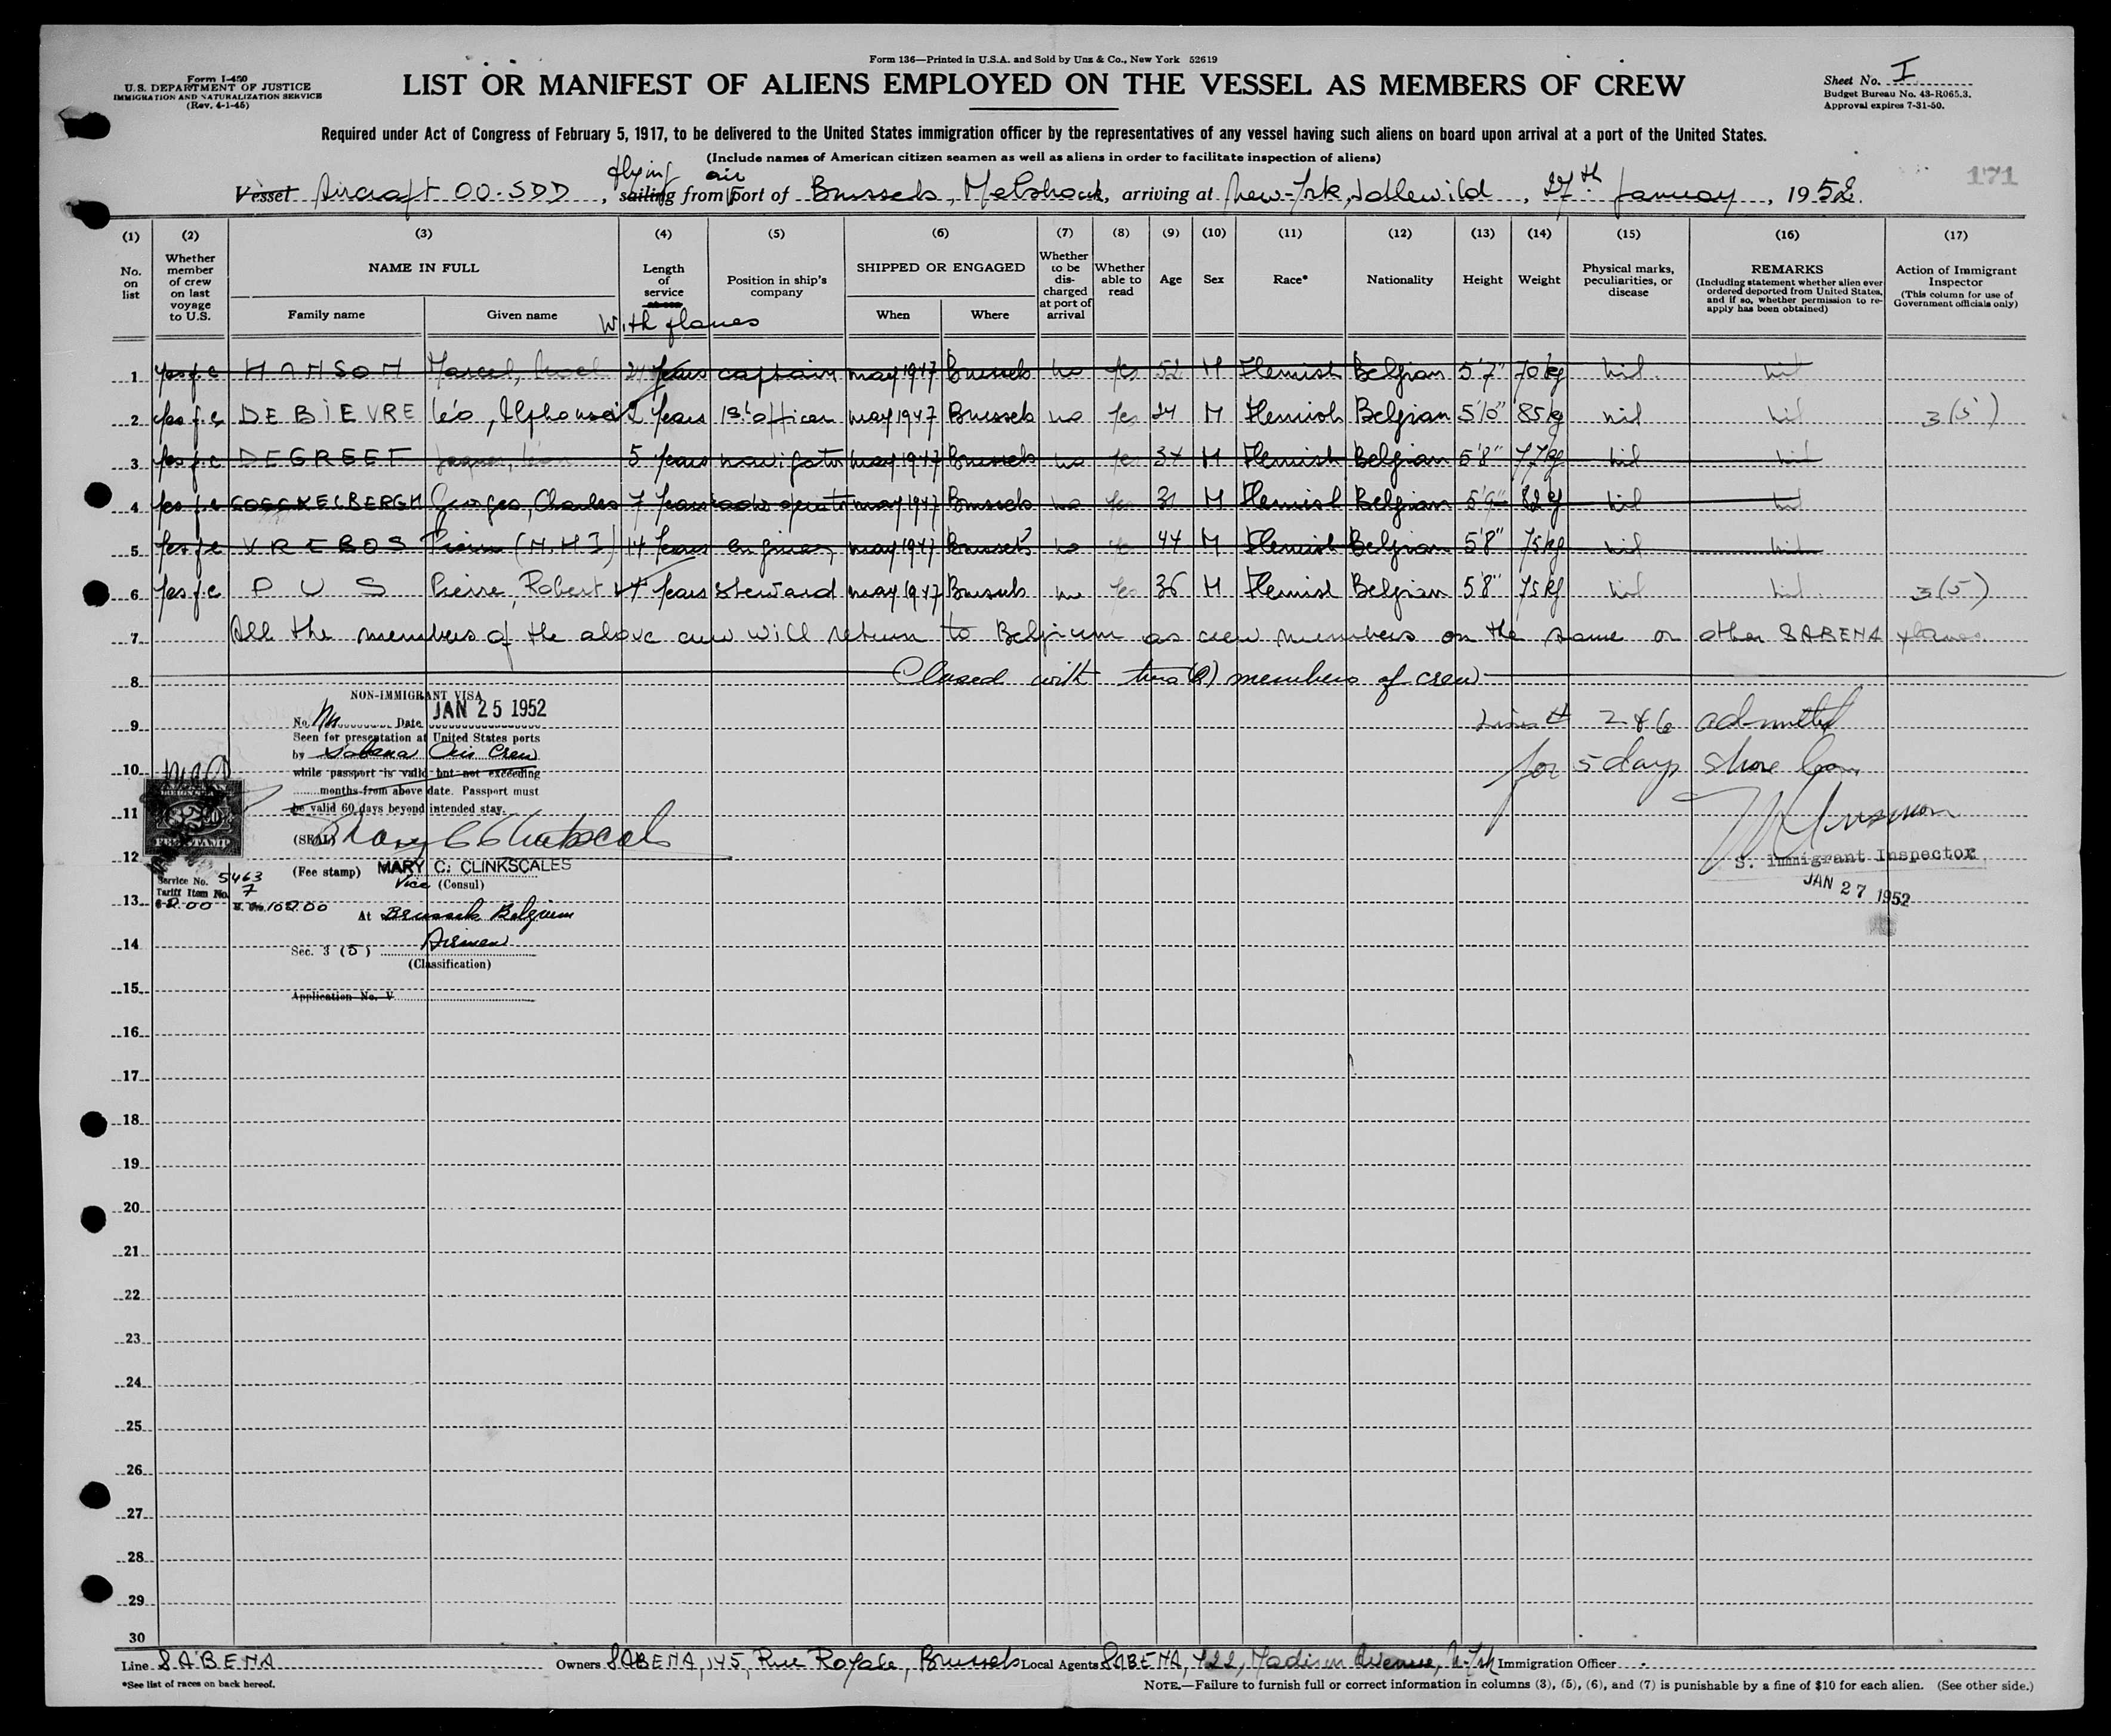 Form 136—Printed in U.S.A. and Sold by Unz & Co., New York 52619
Form I-480
U.S. DEPARTMENT OF JUSTICE
IMMIGRATION AND NATURALIZATION SERVICE
(Rev. 4-1-45)
LIST OR MANIFEST OF ALIENS EMPLOYED ON THE VESSEL AS MEMBERS OF CREW
Sheet No. I
Budget Bureau No. 43-R065.3.
Approval expires 7-31-50.
Required under Act of Congress of February 5, 1917, to be delivered to the United States immigration officer by the representatives of any vessel having such aliens on board upon arrival at a port of the United States.
(Include names of American citizen seamen as well as aliens in order to facilitate inspection of aliens)
flying air
171
Vessel Aircraft OO-SDD, sailing from port of Brussels, Melsbroek, arriving at New-York, Idlewild, 27th January, 1952.
(1) (2) (3) (4) (5) (6) (7) (8) (9) (10) (11) (12) (13) (14) (15) (16) (17)
No. on list
Whether member of crew on last voyage to U.S.
NAME IN FULL
Family name Given name
Length of service
With planes
Position in ship's company
SHIPPED OR ENGAGED
When Where
Whether to be discharged at port of arrival
Whether able to read
Age Sex Race* Nationality Height Weight
Physical marks, peculiarities, or disease
REMARKS
(Including statement whether alien ever ordered deported from United States, and if so, whether permission to reapply has been obtained)
Action of Immigrant Inspector
(This column for use of Government officials only)
1 yes f.c HANSON Marcel, years captain may 1947 Brussels no yes 52 M Flemish Belgian 5'7" 70kg nil nil
2 yes f.c DE BIEVRE Léo, Alphonse years 1st officer may 1947 Brussels no yes M Flemish Belgian 5'10" 85kg nil nil 3(5)
3 yes f.c DEGREEF 5 years navigator may 1947 Brussels no yes 34 M Flemish Belgian 5'8" 77kg nil nil
4 yes f.c COECKELBERGH Georges, Charles 7 years radio operator may 1947 Brussels no yes 31 M Flemish Belgian 5'9" 82kg nil nil
5 yes f.c VREBOS Pierre (M.H.J) 14 years engineer may 1947 Brussels no yes 44 M Flemish Belgian 5'8" 75kg nil nil
6 yes f.c PUS Pierre, Robert years steward may 1947 Brussels no yes 36 M Flemish Belgian 5'8" 75kg nil nil 3(5)
7 All the members of the above crew will return to Belgium as crew members on the same or other SABENA planes.
8 Closed with two (2) members of crew
NON-IMMIGRANT VISA
No. Date JAN 25 1952
9 Lines # 2 & 6 admitted
Seen for presentation at United States ports
by Sabena Air Crew
10 for 5 days shore leave
while passport is valid but not exceeding
months from above date. Passport must
be valid 60 days beyond intended stay.
11
(SEAL) Mary C Clinkscales
FEE STAMP
12
S. Immigrant Inspector
(Fee stamp) MARY C. CLINKSCALES
Vice (Consul)
JAN 27 1952
Service No. 5463
Tariff Item No. 7
13
At Brussels Belgium
14
Sec. 3 (5) Airmen
(Classification)
15
Application No. V
16
17
18
19
20
21
22
23
24
25
26
27
28
29
30
Line SABENA Owners SABENA, 145, Rue Royale, Brussels Local Agents SABENA, 422, Madison Avenue, N-York Immigration Officer
*See list of races on back hereof.
NOTE.—Failure to furnish full or correct information in columns (3), (5), (6), and (7) is punishable by a fine of $10 for each alien. (See other side.)